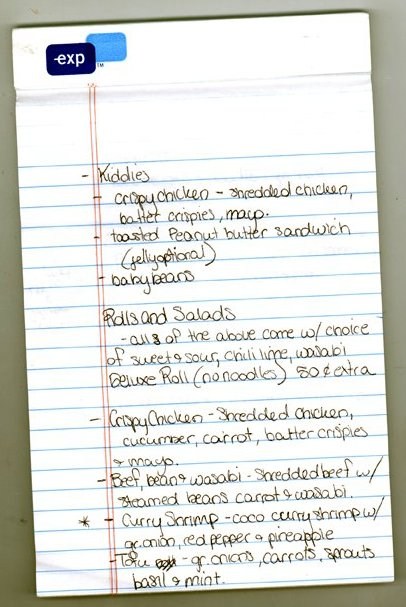 -exp
TM
- Kiddies
- crispy chicken - shredded chicken,
batter crispies, mayo.
- toasted Peanut butter sandwich
(jelly optional)
- baby beans
Rolls and Salads
- all 3 of the above come w/ choice
of sweet & sour, chili lime, wasabi
Deluxe Roll (no noodles) 50¢ extra
- Crispy Chicken - Shredded chicken,
cucumber, carrot, batter crispies
& mayo.
- Beef, beans & wasabi - Shredded beef w/
steamed beans carrot & wasabi.
* - Curry Shrimp - coco curry shrimp w/
gr. onion, red pepper & pineapple
- Tofu - gr. onions, carrots, sprouts
basil & mint.